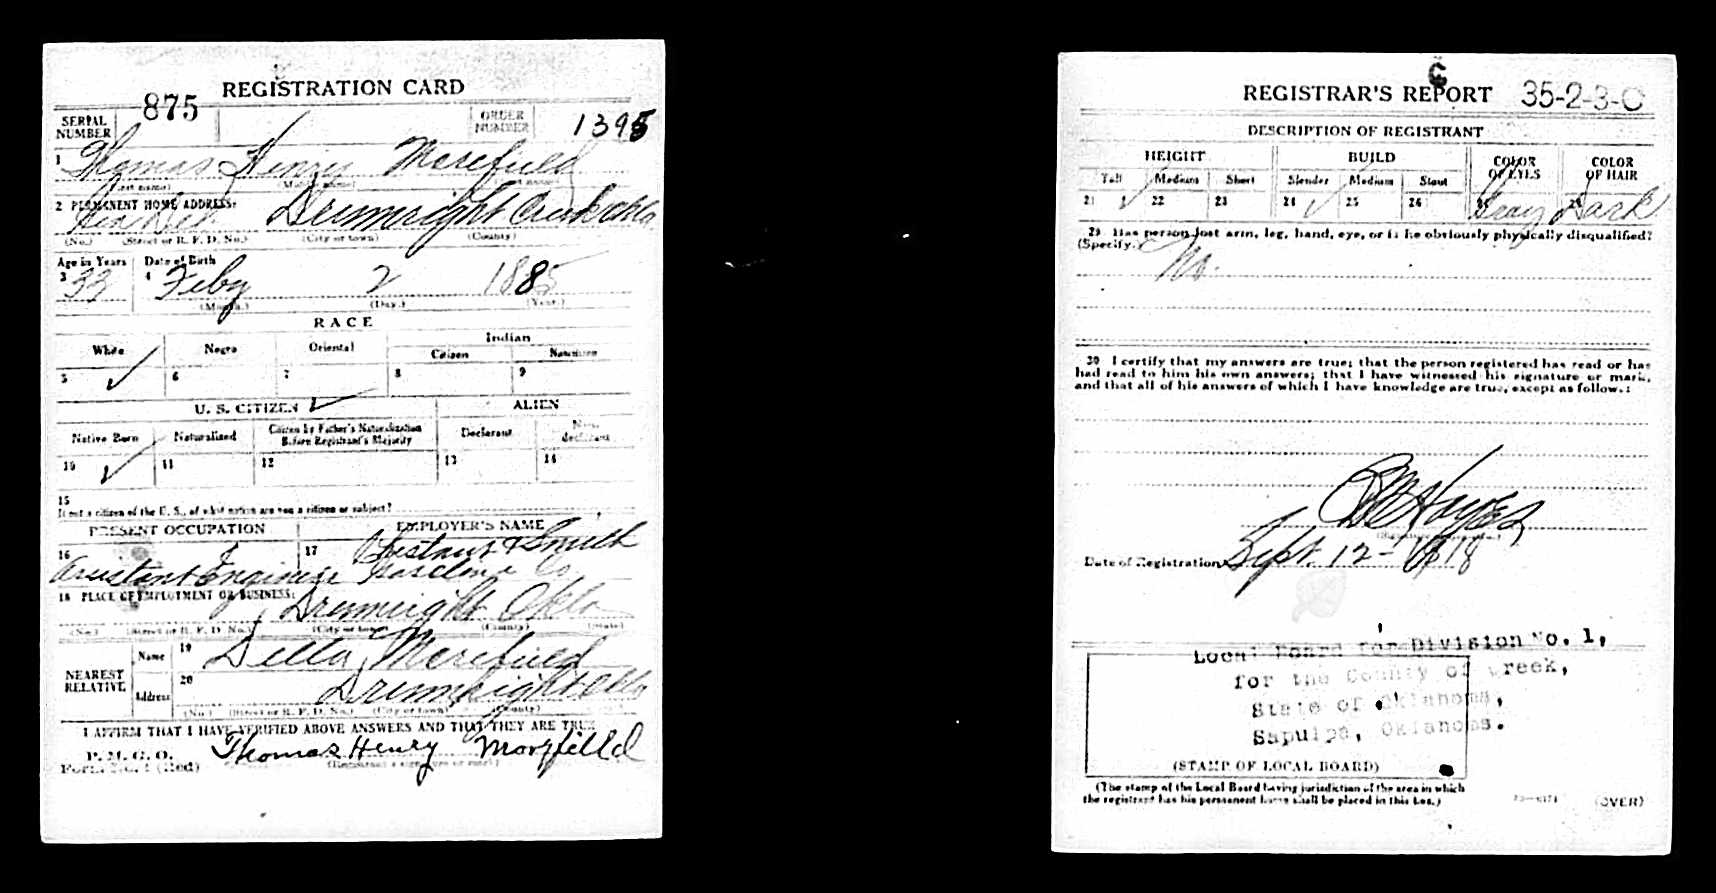 REGISTRATION CARD
SERIAL NUMBER 875 ORDER NUMBER 1395
1 Thomas Henry Merefield
(First name) (Middle name) (Last name)
2 PERMANENT HOME ADDRESS:
Gen Del Drumright Creek Okla
(No.) (Street or R. F. D. No.) (City or town) (County)
Age in Years Date of Birth
3 33 4 Feby 2 1885
(Month.) (Day.) (Year.)
RACE
White Negro Oriental Indian
Citizen Noncitizen
5 ✓ 6 7 8 9
U. S. CITIZEN ✓ ALIEN
Native Born Naturalized Citizen by Father's Naturalization Before Registrant's Majority Declarant Non-declarant
10 ✓ 11 12 13 14
15
If not a citizen of the U. S., of what nation are you a citizen or subject?
PRESENT OCCUPATION EMPLOYER'S NAME
16 Assistant Engineer 17 & Smith Gasoline Co
18 PLACE OF EMPLOYMENT OR BUSINESS:
Drumright Okla
(No.) (Street or R. F. D. No.) (City or town) (County) (State)
NEAREST RELATIVE
Name 19 Della Merefield
Address 20 Drumright Okla
(No.) (Street or R. F. D. No.) (City or town) (County)
I AFFIRM THAT I HAVE VERIFIED ABOVE ANSWERS AND THAT THEY ARE TRUE
P. M. G. O.
Form No. 1 (Red) Thomas Henry Moryfield
(Registrant's signature or mark)
REGISTRAR'S REPORT 35-2-3-C
DESCRIPTION OF REGISTRANT
HEIGHT BUILD COLOR OF EYES COLOR OF HAIR
Tall Medium Short Slender Medium Stout
21 ✓ 22 23 24 ✓ 25 26 27 Gray 28 Dark
29 Has person lost arm, leg, hand, eye, or is he obviously physically disqualified?
(Specify.) No.
30 I certify that my answers are true; that the person registered has read or has
had read to him his own answers; that I have witnessed his signature or mark,
and that all of his answers of which I have knowledge are true, except as follows:
Hayes
Date of Registration Sept. 12 - 1918
Local Board for Division No. 1,
for the County of Creek,
State of Oklahoma,
Sapulpa, Oklahoma.
(STAMP OF LOCAL BOARD)
(The stamp of the Local Board having jurisdiction of the area in which
the registrant has his permanent home shall be placed in this box.)
(OVER)